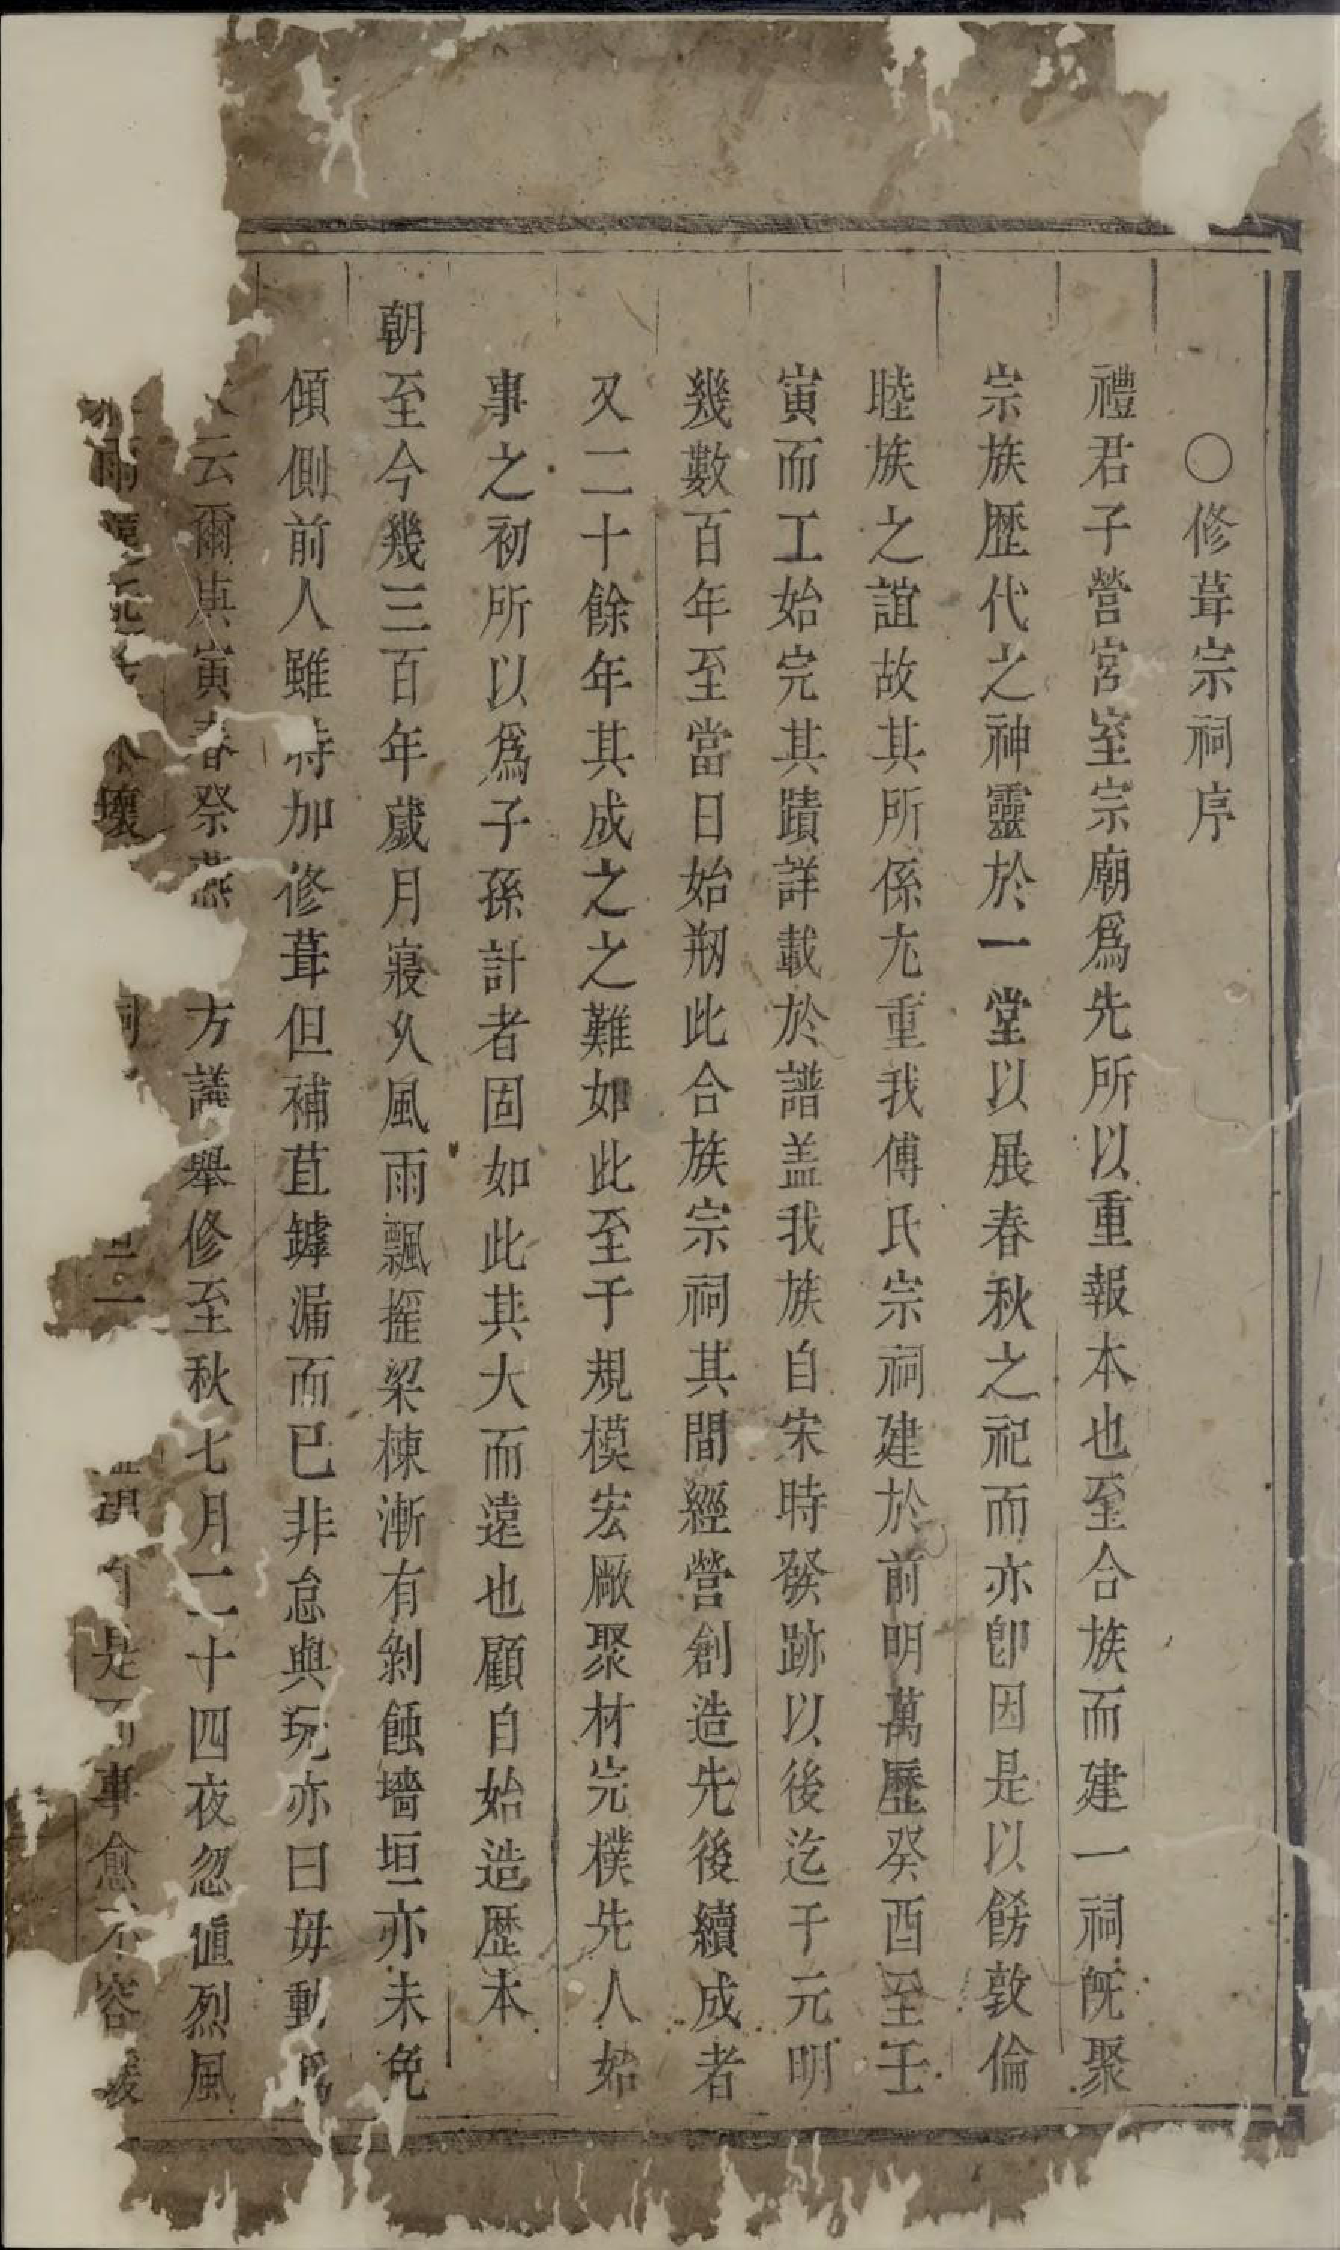 〇修葺宗祠序
禮君子營宮室宗廟爲先所以重報本也至合族而建一祠旣聚
宗族歷代之神靈於一堂以展春秋之祀而亦卽因是以餝敦倫
睦族之誼故其所係尤重我傅氏宗祠建於前明萬歷癸酉至壬
寅而工始完其蹟詳載於譜盖我族自宋時發跡以後迄于元明
幾數百年至當日始剏此合族宗祠其間經營創造先後續成者
又二十餘年其成之之難如此至于規模宏厰聚材完樸先人始
事之初所以爲子孫計者固如此其大而遠也顧自始造歷本
朝至今幾三百年歲月寖久風雨飄搖梁棟漸有剝蝕墻垣亦未免
傾側前人雖時加修葺但補苴罅漏而已非怠與玩亦曰毋動爲
云爾庚寅春祭燕方議舉修至秋七月二十四夜忽值烈風
雨壞祠二是事愈不容緩